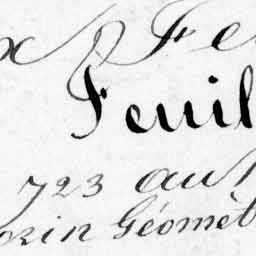 x Fe
Feuil
723 au
ozin Géomèt